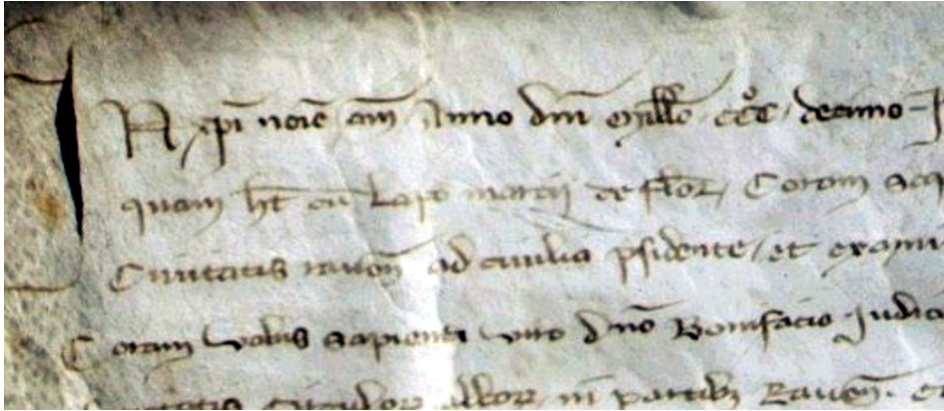 IN xpi noīe am̄ Anno dn̄i Millo ccc° decimo I
quam ht cū Lapo martij de flor Coram sap
Civitatis raven̄ ad civilia psidente et exami
Coram vobis sapienti viro dn̄o Bonifacio Judic
in partib Raven̄ et